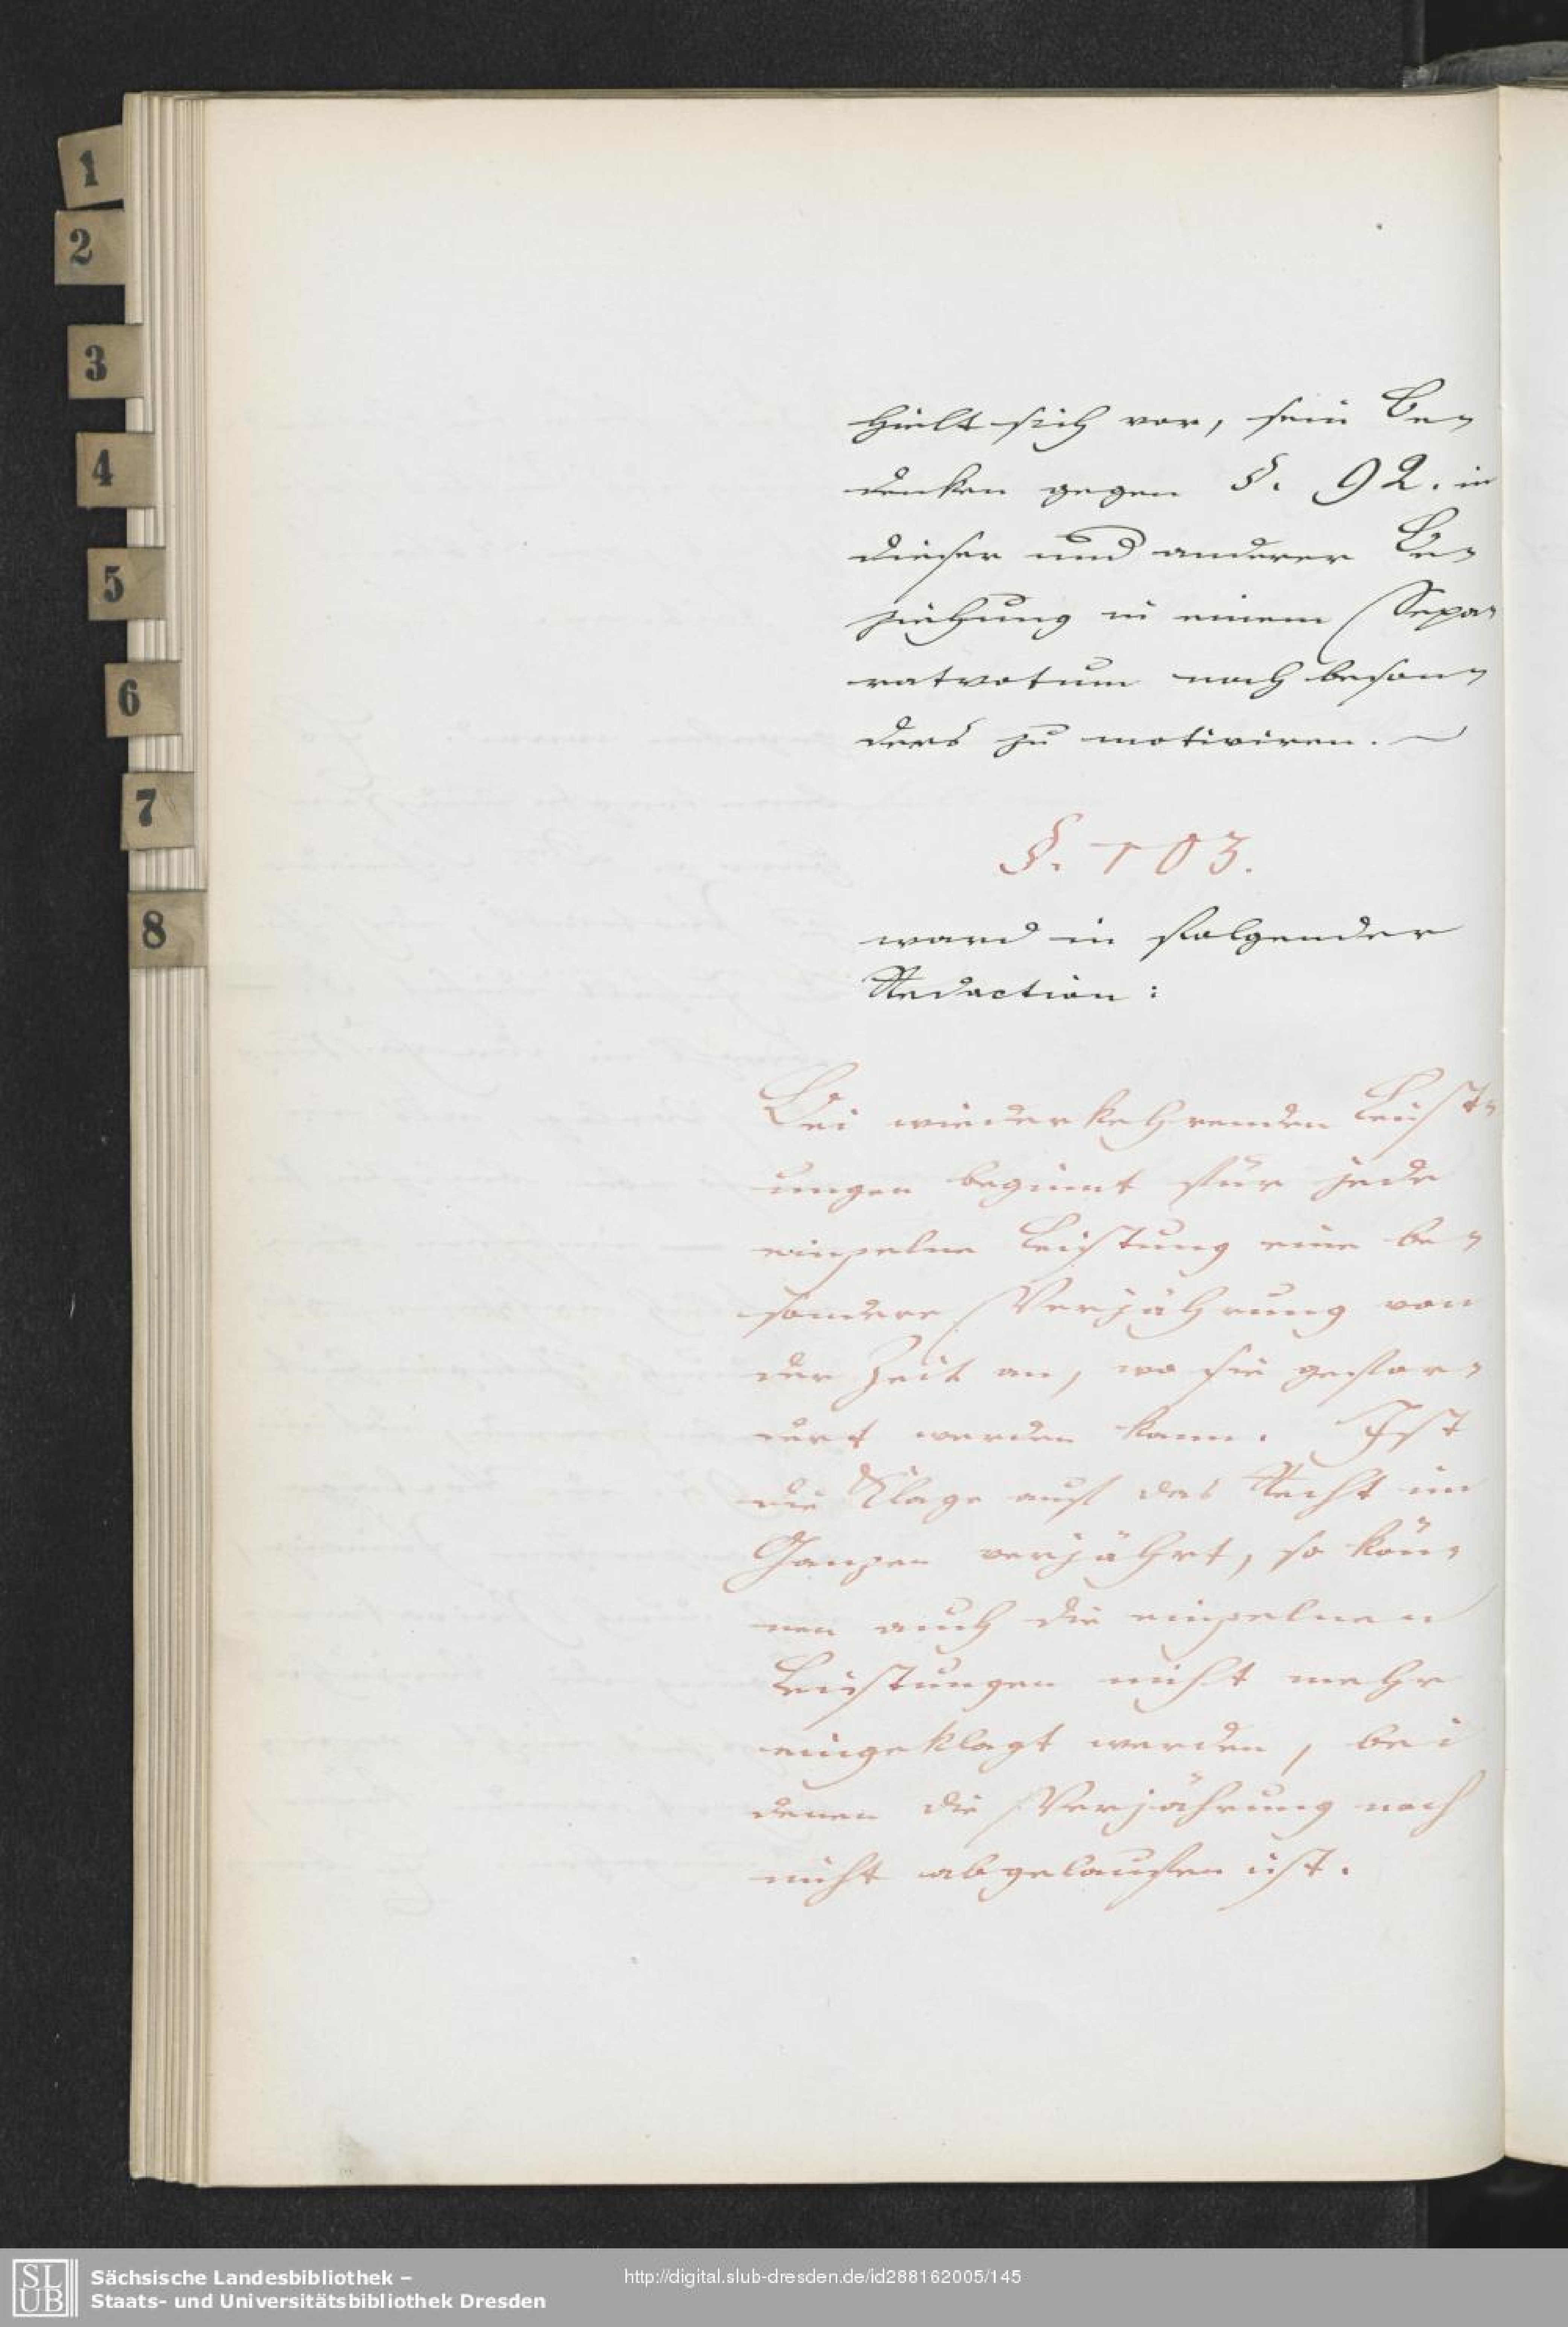 1
2
3
4
5
6
7
8
hielt sich vor, sein Be-
denken gegen §. 92. in
dieser und anderer Be-
ziehung in einem Sepa-
ratvotum noch beson-
ders zu motiviren. ~
§. 103.
ward in folgender
Redaction:
Bei wiederkehrenden Leist-
ungen beginnt für jede
einzelne Leistung eine be-
sondere Verjährung von
der Zeit an, wo sie gefor-
dert werden kann. Ist
die Klage auf das Recht im
Ganzen verjährt, so kön-
nen auch die einzelnen
Leistungen nicht mehr
eingeklagt werden, bei
denen die Verjährung noch
nicht abgelaufen ist.
SLUB
Sächsische Landesbibliothek –
Staats- und Universitätsbibliothek Dresden
http://digital.slub-dresden.de/id288162005/145